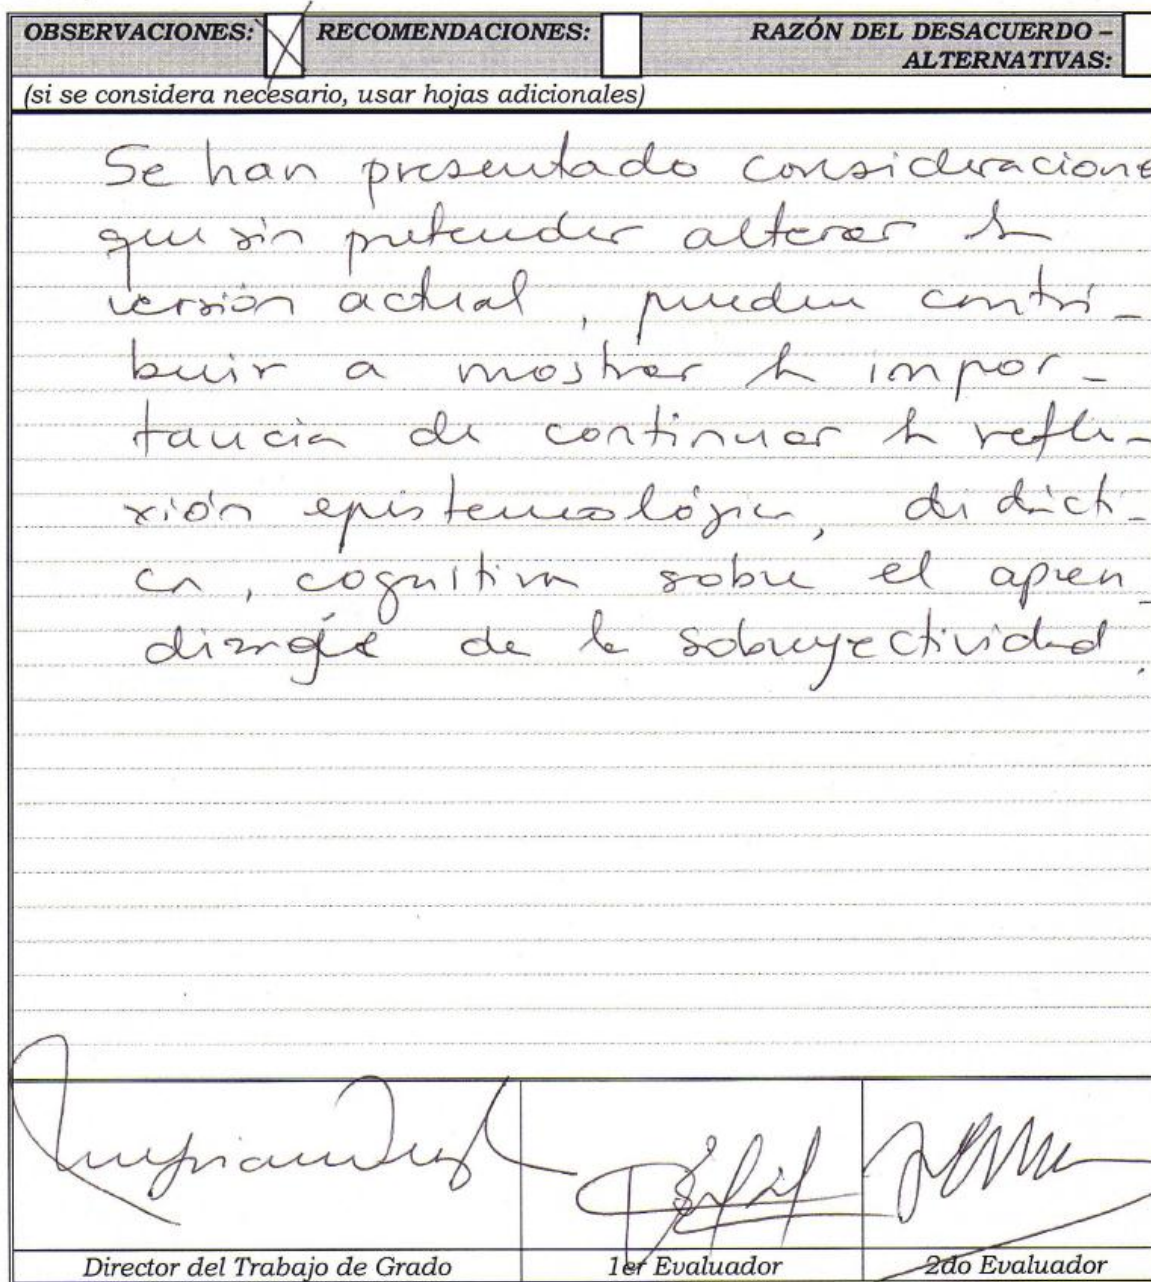 OBSERVACIONES: RECOMENDACIONES: RAZÓN DEL DESACUERDO –
ALTERNATIVAS:
(si se considera necesario, usar hojas adicionales)
Se han presentado consideracione
que sin pretender alterar la
versión actual, pueden contri-
buir a mostrar la impor-
tancia de continuar la refle-
xión epistemológica, didácti-
ca, cognitiva sobre el apren-
dizaje de la sobreyectividad.
Director del Trabajo de Grado 1er Evaluador 2do Evaluador